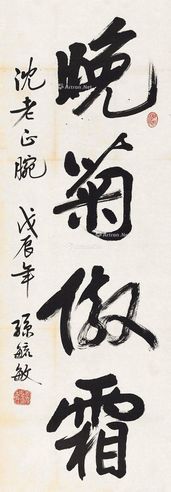 晚菊傲霜
沈老正腕 戊辰年 孫毓敏